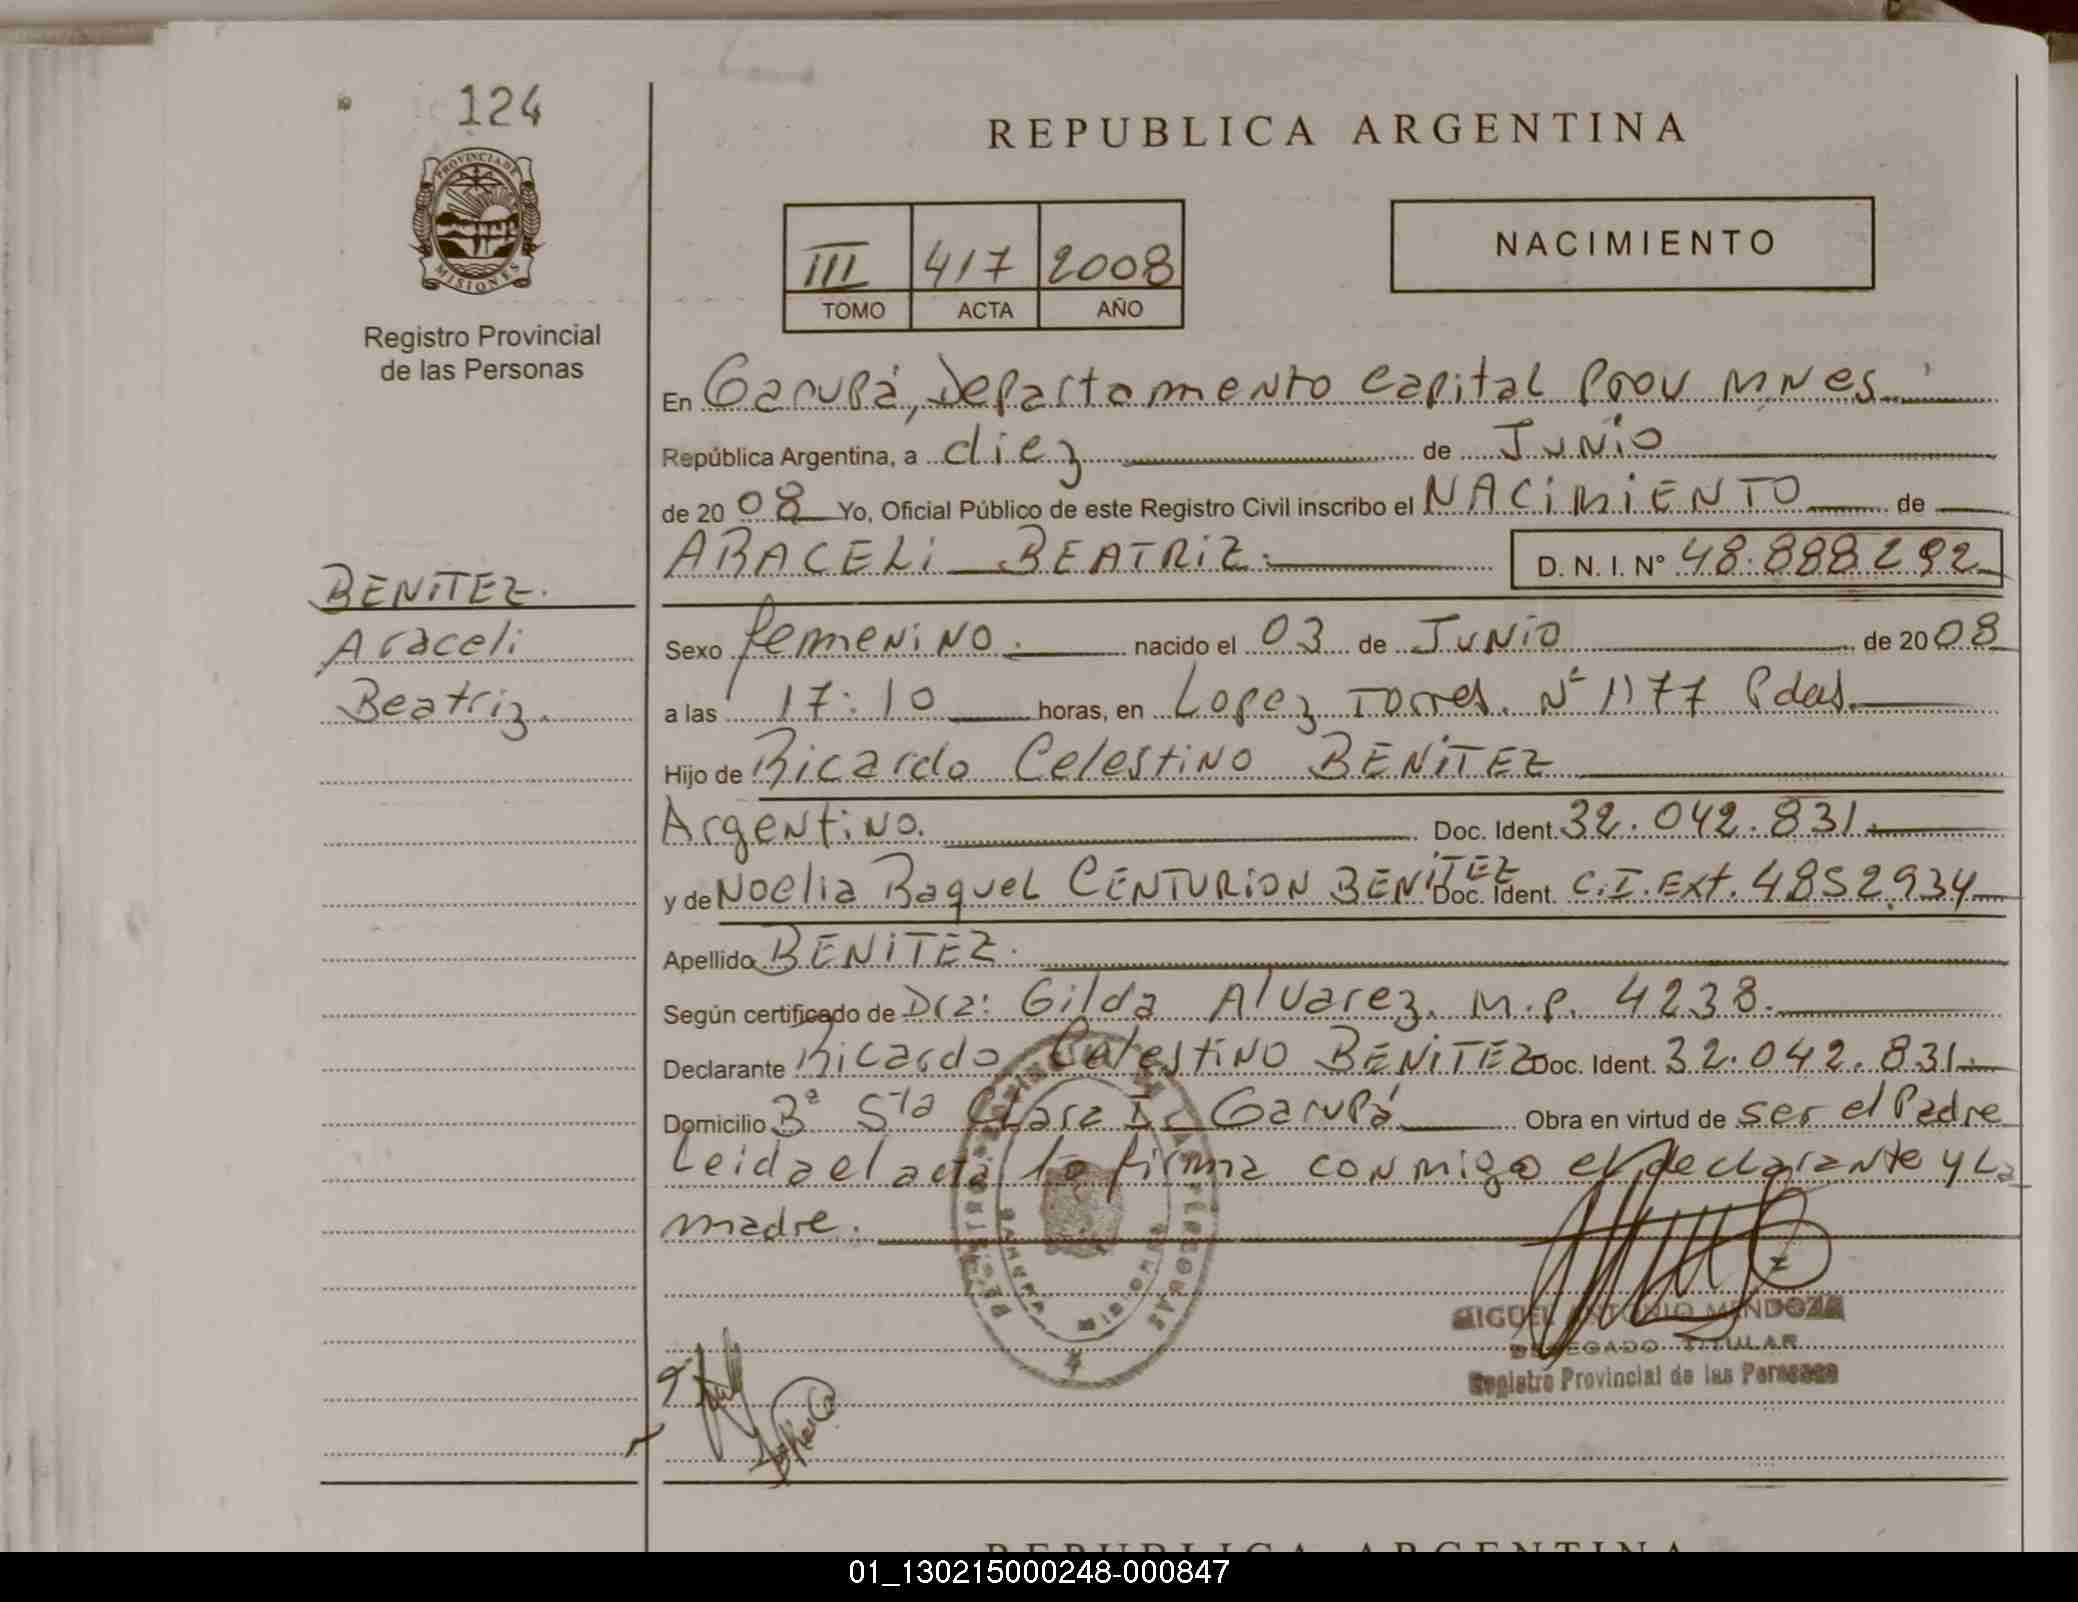 124
PROVINCIA DE
MISIONES
Registro Provincial
de las Personas
REPUBLICA ARGENTINA
III 417 2008
TOMO ACTA AÑO
NACIMIENTO
En Garupá, Departamento Capital Prov Mnes
República Argentina, a diez de Junio
de 2008 Yo, Oficial Público de este Registro Civil inscribo el NACIMIENTO de
ARACELI BEATRIZ. D. N. I. Nº 48.888.292
BENITEZ.
Araceli
Beatriz.
Sexo femenino. nacido el 03 de Junio de 2008
a las 17:10 horas, en Lopez Torres. Nº 1177 Pdas.
Hijo de Ricardo Celestino BENITEZ
Argentino. Doc. Ident. 32.042.831.
y de Noelia Raquel CENTURION BENITEZ Doc. Ident. C.I. Ext. 4852934
Apellido BENITEZ.
Según certificado de Dra: Gilda Alvarez. M.P. 4238.
Declarante Ricardo Celestino BENITEZ Doc. Ident. 32.042.831.
Domicilio Bº Sta Clara I. Garupá Obra en virtud de ser el Padre
Leida el acta la firma conmigo el declarante y La
madre.
MIGUEL ANTONIO MENDOZA
DELEGADO TITULAR
Registro Provincial de las Personas
REPUBLICA ARGENTINA
01_130215000248-000847